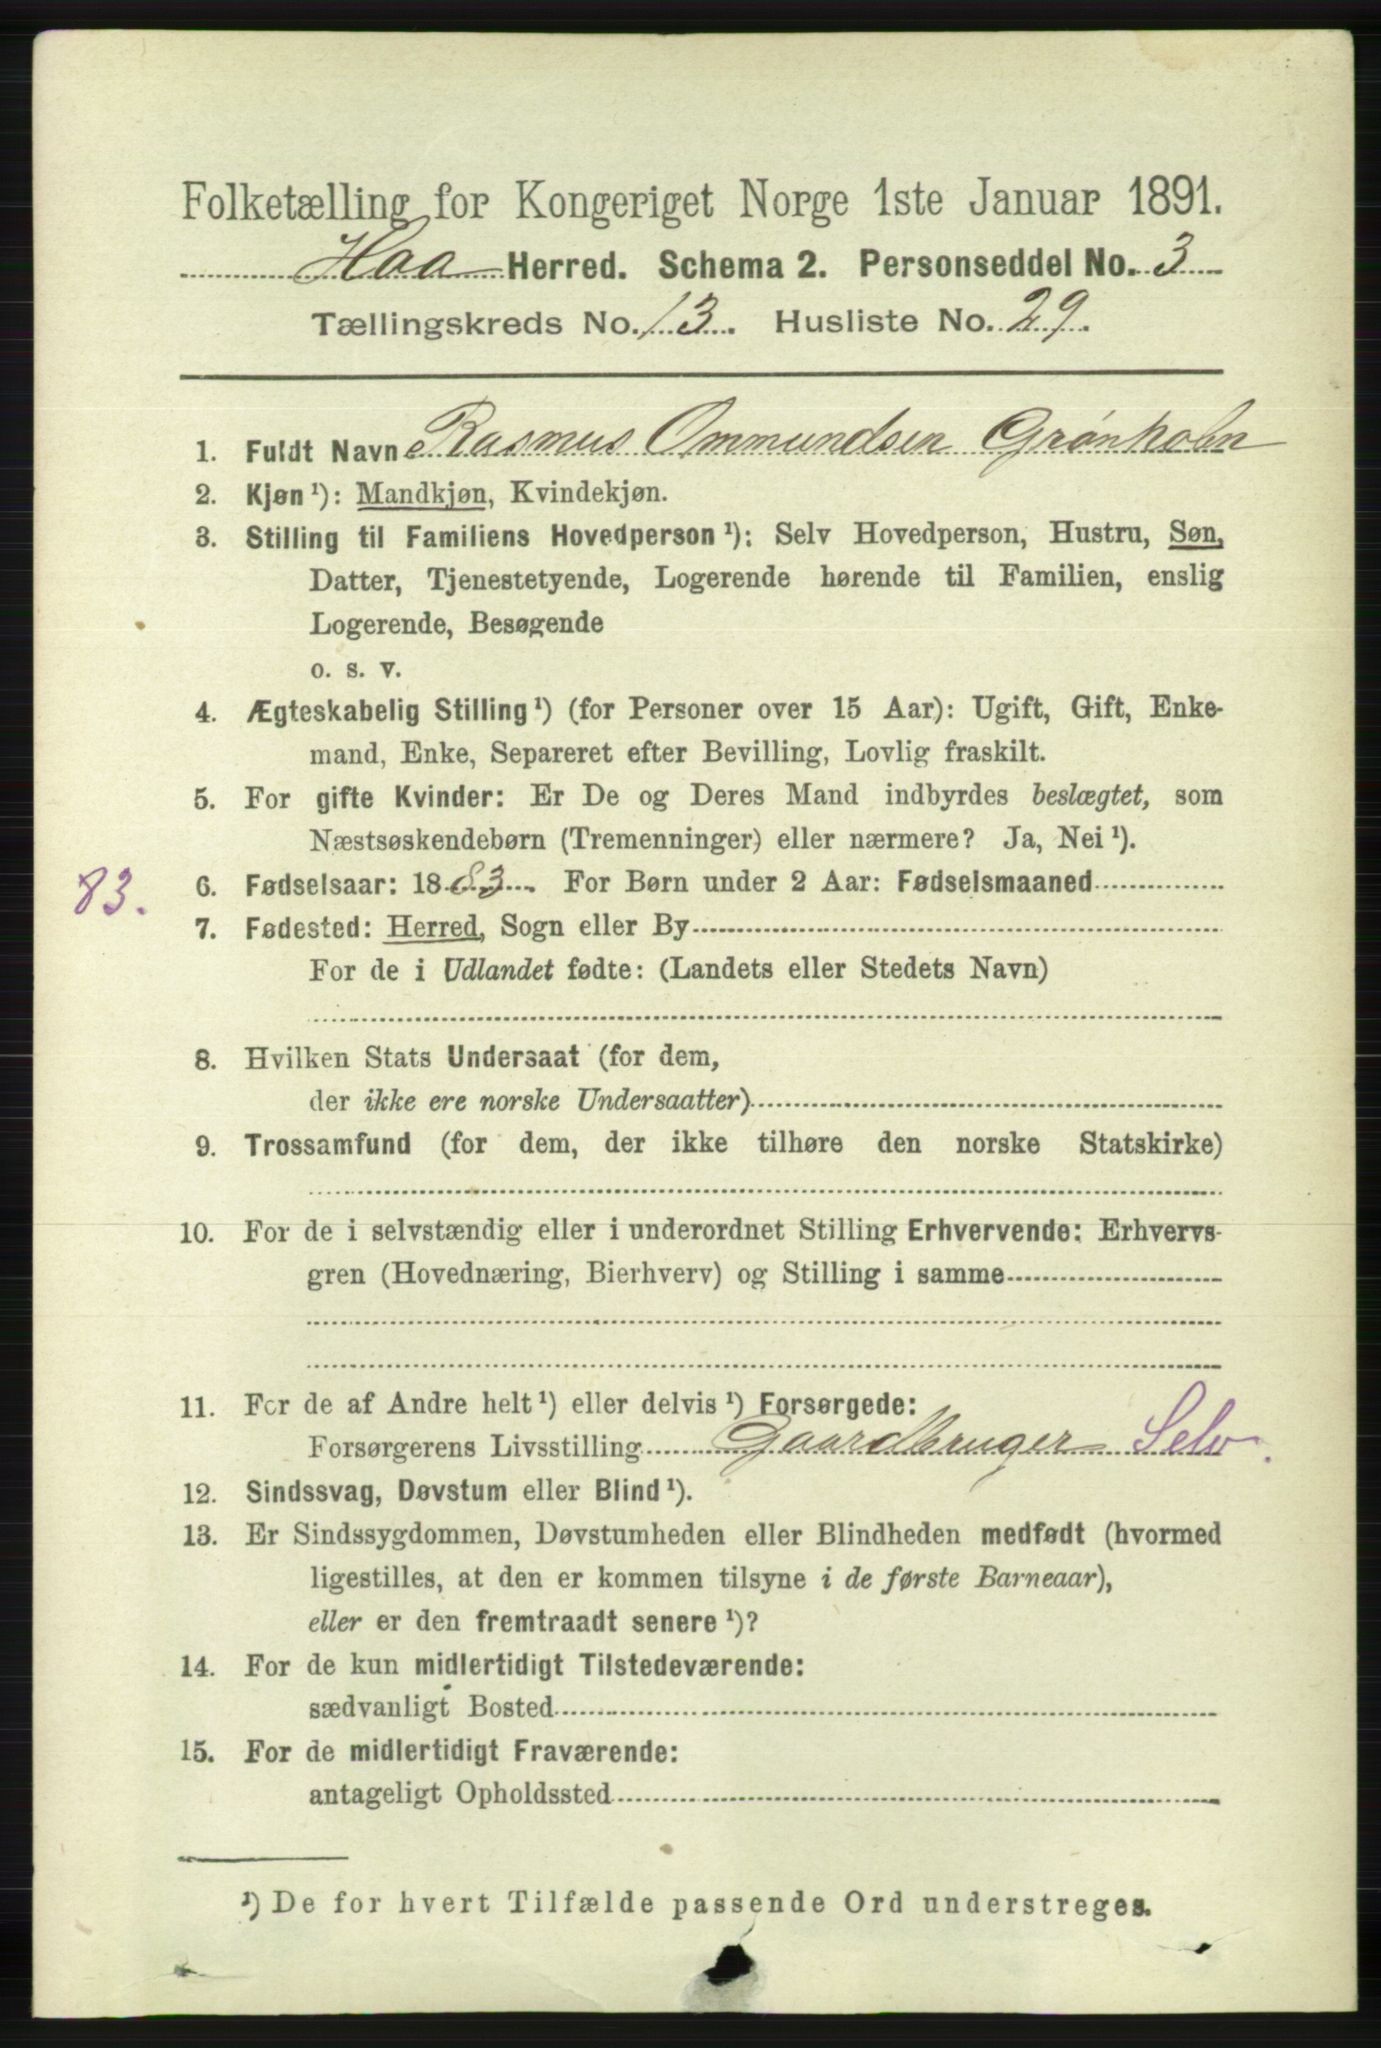 Folketælling for Kongeriget Norge 1ste Januar 1891.
Haa Herred. Schema 2. Personseddel No. 3
Tællingskreds No. 13. Husliste No. 29.
1. Fuldt Navn Rasmus Ommundsen Grønholen
2. Kjøn¹): Mandkjøn, Kvindekjøn.
3. Stilling til Familiens Hovedperson¹): Selv Hovedperson, Hustru, Søn,
Datter, Tjenestetyende, Logerende hørende til Familien, enslig
Logerende, Besøgende
o. s. v.
4. Ægteskabelig Stilling¹) (for Personer over 15 Aar): Ugift, Gift, Enke-
mand, Enke, Separeret efter Bevilling, Lovlig fraskilt.
5. For gifte Kvinder: Er De og Deres Mand indbyrdes beslægtet, som
Næstsøskendebørn (Tremenninger) eller nærmere? Ja, Nei¹).
83. 6. Fødselsaar: 1883. For Børn under 2 Aar: Fødselsmaaned
7. Fødested: Herred, Sogn eller By
For de i Udlandet fødte: (Landets eller Stedets Navn)
8. Hvilken Stats Undersaat (for dem,
der ikke ere norske Undersaatter)
9. Trossamfund (for dem, der ikke tilhøre den norske Statskirke)
10. For de i selvstændig eller i underordnet Stilling Erhvervende: Erhvervs-
gren (Hovednæring, Bierhverv) og Stilling i samme
11. For de af Andre helt¹) eller delvis¹) Forsørgede:
Forsørgerens Livsstilling Gaardbruger Selv.
12. Sindssvag, Døvstum eller Blind¹).
13. Er Sindssygdommen, Døvstumheden eller Blindheden medfødt (hvormed
ligestilles, at den er kommen tilsyne i de første Barneaar),
eller er den fremtraadt senere¹)?
14. For de kun midlertidigt Tilstedeværende:
sædvanligt Bosted
15. For de midlertidigt Fraværende:
antageligt Opholdssted
¹) De for hvert Tilfælde passende Ord understreges.